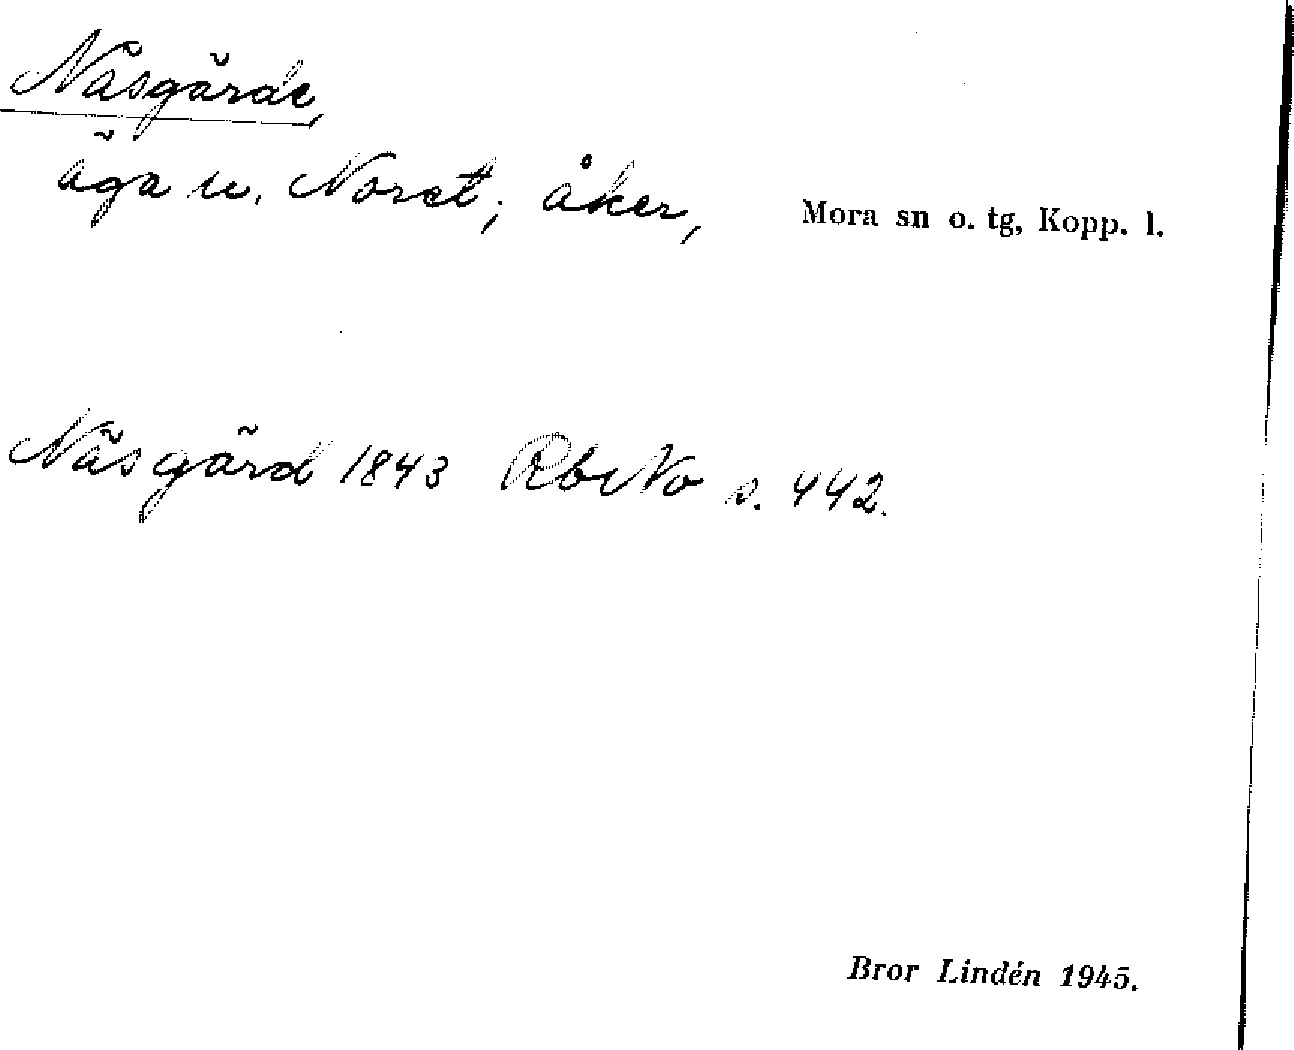 Näsgärde,
äga u. Noret; åker, Mora sn o. tg, Kopp. l.
Näsgärd 1843 RbNo s. 442.
Bror Lindén 1945.